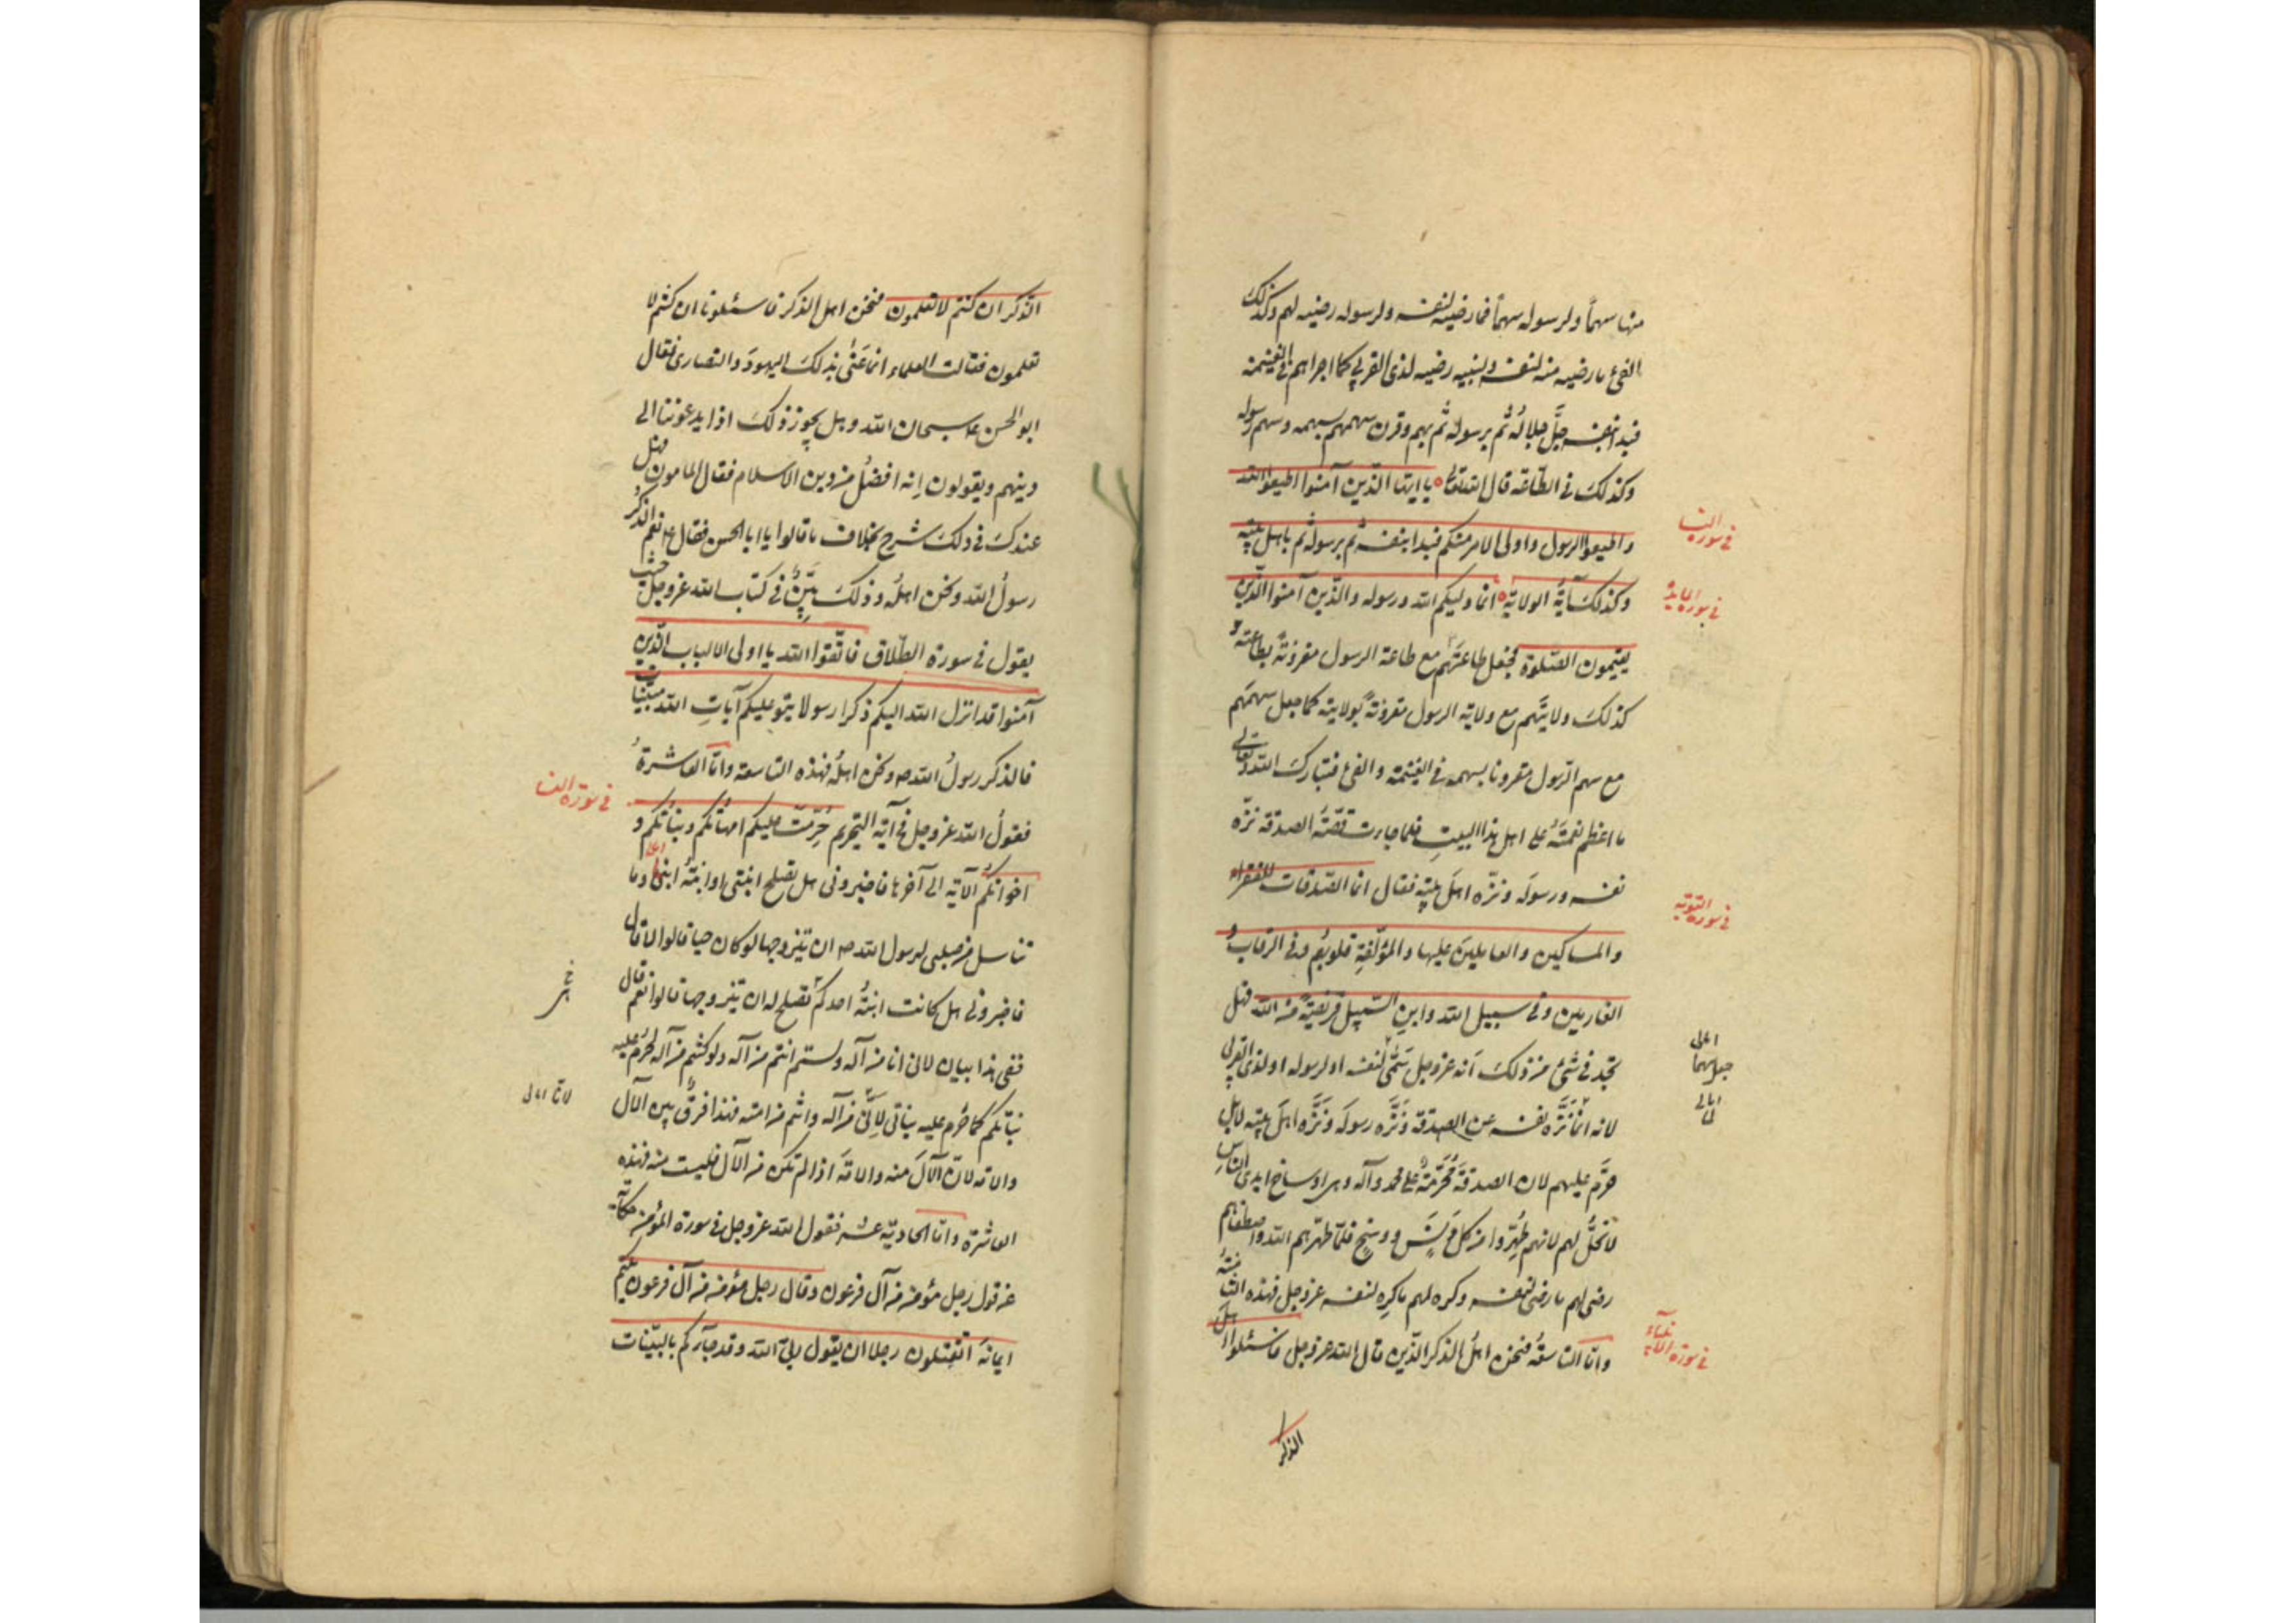 منها سهماً ولرسوله سهماً فما رضيه لنفسه ولرسوله رضيه لهم وكذلك
الفئ ما رضيه منه لنفسه ولنبيه رضيه لذى القربى كما اجراهم فى الغنيمة
فبدا بنفسه جلّ جلاله ثم برسوله ثم بهم وقرن سهمهم بسهمه وسهم رسوله
وكذلك فى الطاعة قال الله تعالى يا ايها الذين آمنوا اطيعوا الله
واطيعوا الرسول واولى الامر منكم فبدا بنفسه ثم برسوله ثم باهل بيته
وكذلك آية الولاية انما وليكم الله ورسوله والذين آمنوا الذين
يقيمون الصلوة فجعل طاعتهم مع طاعة الرسول مقرونة بطاعته و
كذلك ولايتهم مع ولاية الرسول مقرونة بولايته كما جعل سهمهم
مع سهم الرسول مقرونا بسهمه فى الغنيمة والفئ فتبارك الله وتعالى
ما اعظم نعمته على اهل هذا البيت فلما جاءت قصّة الصدقة نزّه
نفسه ورسوله ونزّه اهل بيته فقال انما الصدقات للفقراء
والمساكين والعاملين عليها والمؤلّفة قلوبهم وفى الرقاب و
الغارمين وفى سبيل الله وابن السبيل فريضةً من الله فهل
تجد فى شئ من ذلك انه عز وجل سمّى لنفسه او لرسوله او لذى القربى
لانه لمّا نزّه نفسه عن الصدقة ونزّه رسوله ونزّه اهل بيته لا بل
حرّم عليهم لان الصدقة محرّمة على محمد وآله وهى اوساخ ايدى الناس
لا تحلّ لهم لانهم طهّروا من كل دنس ووسخ فلمّا طهّرهم الله واصطفاهم
رضى لهم ما رضى لنفسه وكره لهم ما كره لنفسه عز وجل فهذه الثامنة
وامّا التاسعة فنحن اهل الذكر الذين قال الله عز وجل فاسئلوا اهل
الذكر
فى سورة النساء
فى سورة المائدة
فى سورة التوبة
فى سورة الانبياء
الذكر ان كنتم لا تعلمون فنحن اهل الذكر فاسئلونا ان كنتم لا
تعلمون فقالت العلماء انما عنى بذلك اليهود والنصارى فقال
ابو الحسن ع سبحان الله وهل يجوز ذلك اذا يدعوننا الى
دينهم ويقولون انه افضل من دين الاسلام فقال المامون فهل
عندك فى ذلك شرح بخلاف ما قالوا يا ابا الحسن فقال ع نعم الذكر
رسول الله ونحن اهله وذلك بيّن فى كتاب الله عز وجل حيث
يقول فى سورة الطلاق فاتّقوا الله يا اولى الالباب الذين
آمنوا قد انزل الله اليكم ذكرا رسولا يتلو عليكم آيات الله مبيّنات
فالذكر رسول الله ص ونحن اهله فهذه التاسعة وامّا العاشرة
فقول الله عز وجل فى آية التحريم حرّمت عليكم امهاتكم وبناتكم و
اخواتكم الآية الى آخرها فاخبرونى هل تصلح ابنتى او ابنة ابنى وما
تناسل من صلبى لرسول الله ص ان يتزوجها لو كان حيا قالوا لا قال
فاخبرونى هل كانت ابنة احدكم تصلح له ان يتزوجها قالوا نعم قال
ففى هذا بيان لانى انا من آله ولستم انتم من آله ولو كنتم من آله لحرم عليه
بناتكم كما حرم عليه بناتى لانّى من آله وانتم من امته فهذا فرق بين الآل
والامة لانّ الآل منه والامّة اذا لم تكن من الآل فليست منه فهذه
العاشرة وامّا الحادية عشر فقول الله عز وجل فى سورة المؤمن حكاية
عن قول رجل مؤمن من آل فرعون وقال رجل مؤمن من آل فرعون يكتم
ايمانه اتقتلون رجلا ان يقول ربى الله وقد جاءكم بالبيّنات
فى سورة النساء